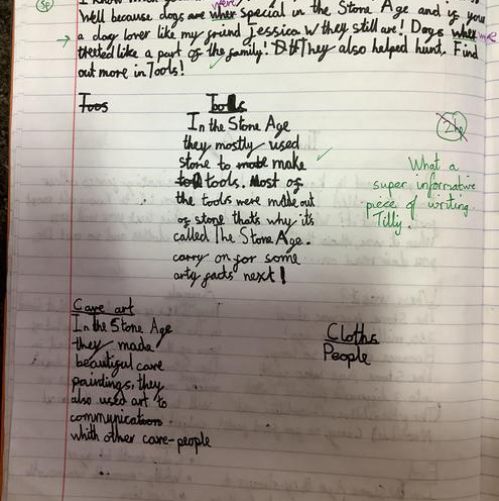 Well because dogs are wher special in the Stone Age and if you
were
sp
a dog lover like my friend Jessica W they still are! Dogs wher
were
treted like a part of the family! They also helped hunt. Find
out more in Tools!
Toos
Tools
In the Stone Age
they mostly used
stone to make
tools. Most of
the tools were made out
of stone that's why it's
called The Stone Age.
carry on for some
arty facts next!
What a
super informative
piece of writing
Tilly.
Cave art
In the Stone Age
they made
beautiful cave
paintings, they
also used art to
communicate
whith other cave-people
Cloths
People